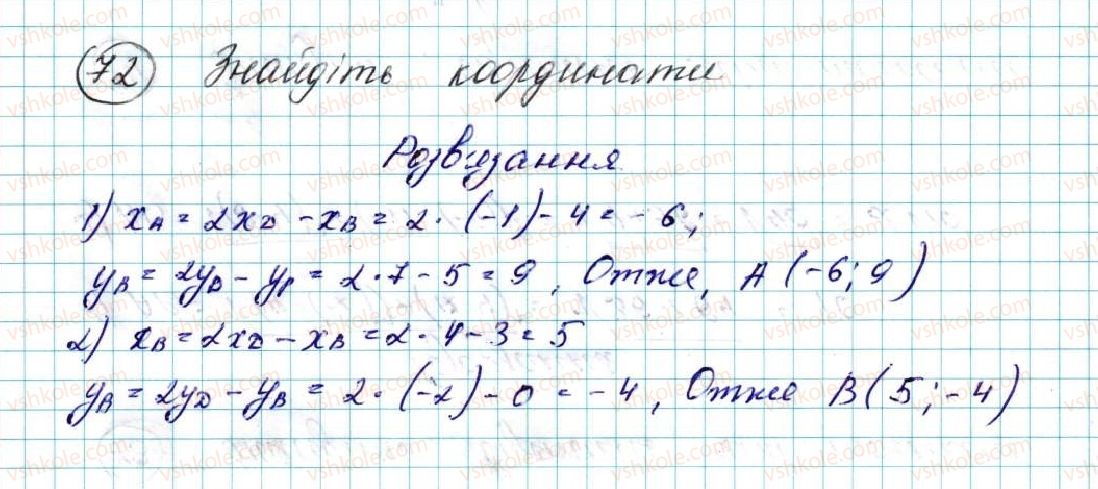 72 Знайдіть координати
Розв'язання
1) xA = 2xD - xB = 2 · (-1) - 4 = -6;
yB = 2yD - yP = 2 · 7 - 5 = 9, Отже, A (-6; 9)
2) xB = 2xD - xB = 2 · 4 - 3 = 5
yB = 2yD - yB = 2 · (-2) - 0 = -4, Отже B (5; -4)
vshkole.com